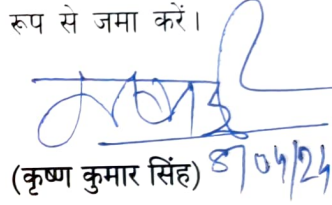 रूप से जमा करें।
(कृष्ण कुमार सिंह) 8/04/24